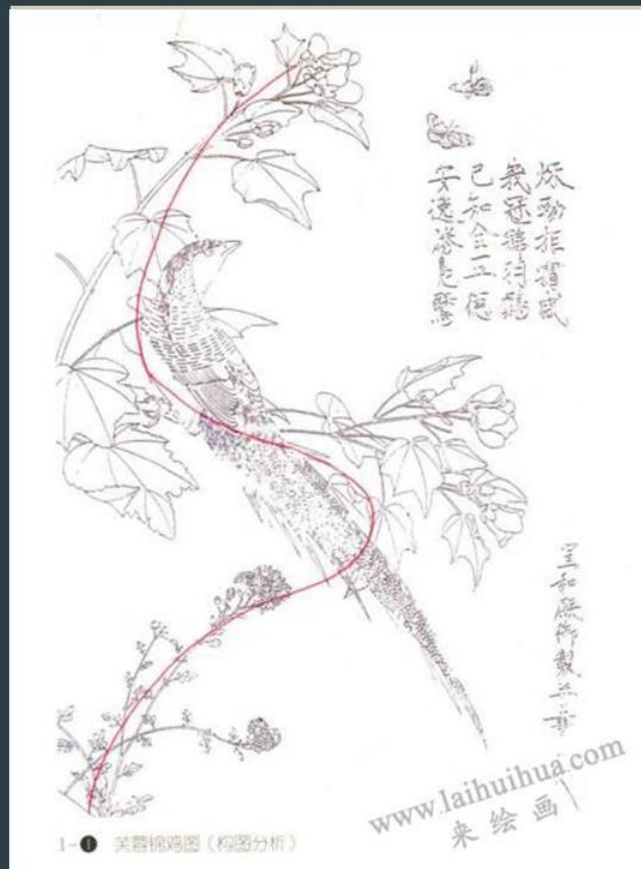 秋勁拒霜盛
峩冠錦羽雞
已知全五德
安逸勝鳧鷖
宣和殿御製并書
www.laihuihua.com
来绘画
1-❶ 芙蓉锦鸡图（构图分析）